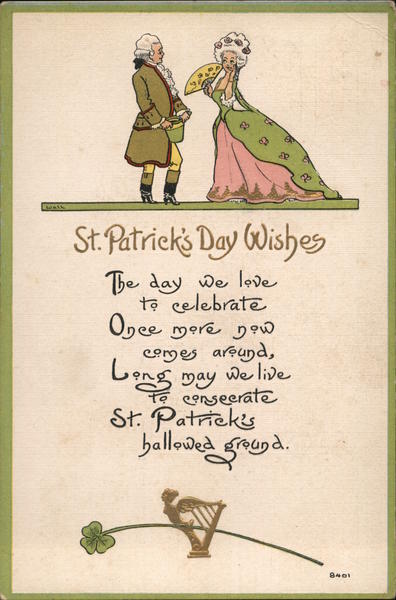 Wall
St. Patrick's Day Wishes
The day we love
to celebrate
Once more now
comes around,
Long may we live
to consecrate
St. Patrick's
hallowed ground.
8401